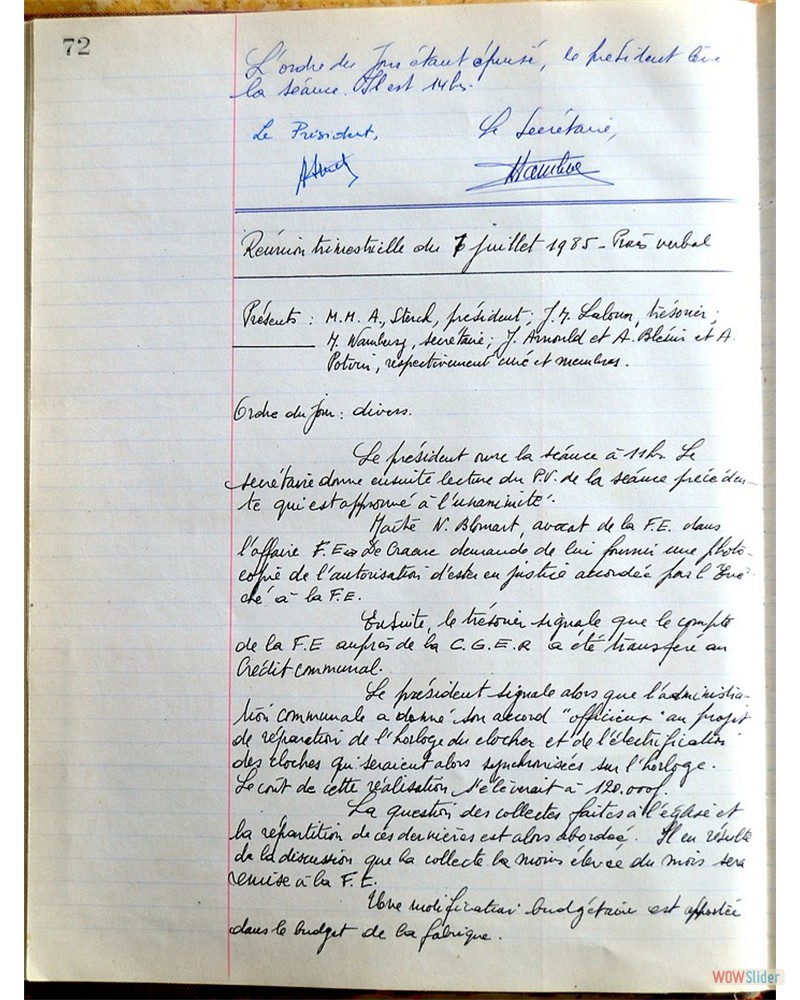 72
L'ordre du Jour étant épuisé, le président lève
la séance. Il est 14hs.
Le Président, Le Secrétaire,
Réunion trimestrielle du 7 juillet 1985 - Procès verbal
Présents : M.M. A. Sterck, président; J.M. Laloux, trésorier;
M. Wamburg, secrétaire; J. Arnould et A. Blésin et A.
Potvin, respectivement curé et membres.
Ordre du Jour : divers.
Le président ouvre la séance à 11hs. Le
secrétaire donne ensuite lecture du P.V. de la séance précéden-
te qui est approuvé à l'unanimité.
Maître N. Blomart, avocat de la F.E. dans
l'affaire F.E. De Craene demande de lui fournir une photo-
copie de l'autorisation d'ester en justice accordée par l'Evê-
ché à la F.E.
Ensuite, le trésorier signale que le compte
de la F.E auprès de la C.G.E.R a été transféré au
Crédit communal.
Le président signale alors que l'administra-
tion communale a donné son accord "officieux" au projet
de réparation de l'horloge du clocher et de l'électrification
des cloches qui seraient alors synchronisées sur l'horloge.
Le coût de cette réalisation s'élèverait à 120.000f.
La question des collectes faites à l'église et
la répartition de ces dernières est alors abordée. Il en résulte
de la discussion que la collecte la moins élevée du mois sera
remise à la F.E.
Une modification budgétaire est apportée
dans le budget de la fabrique.
WOWSlider